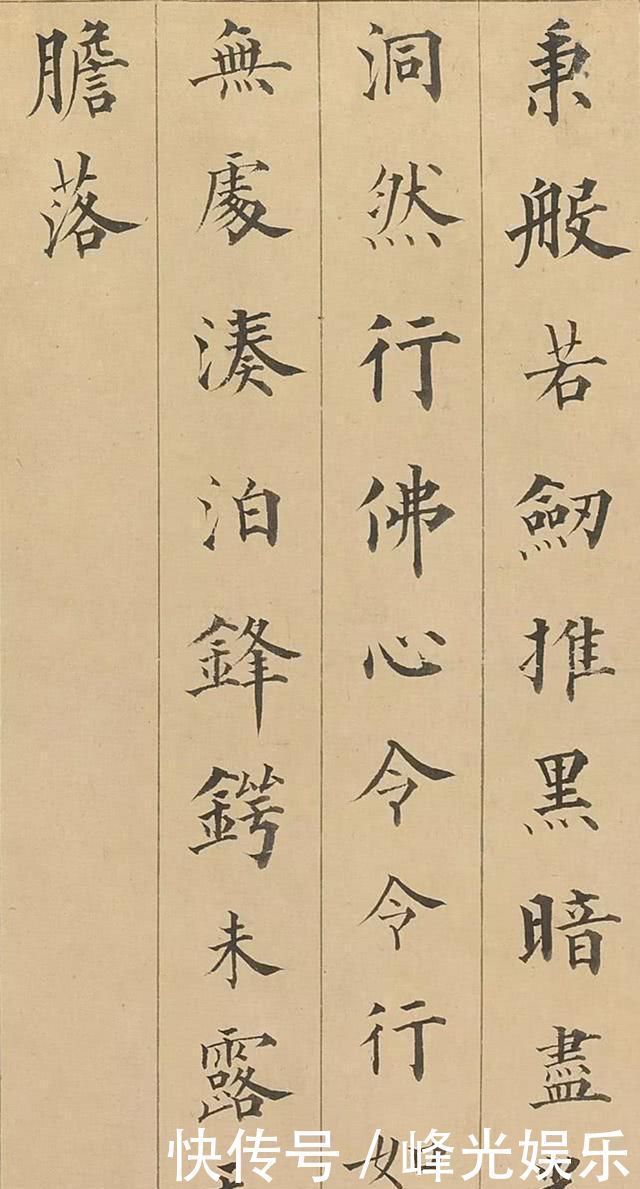 秉般若劒推黑暗盡
洞然行佛心令令行
無處湊泊鋒鍔未露
膽落
快传号 / 峰光娱乐